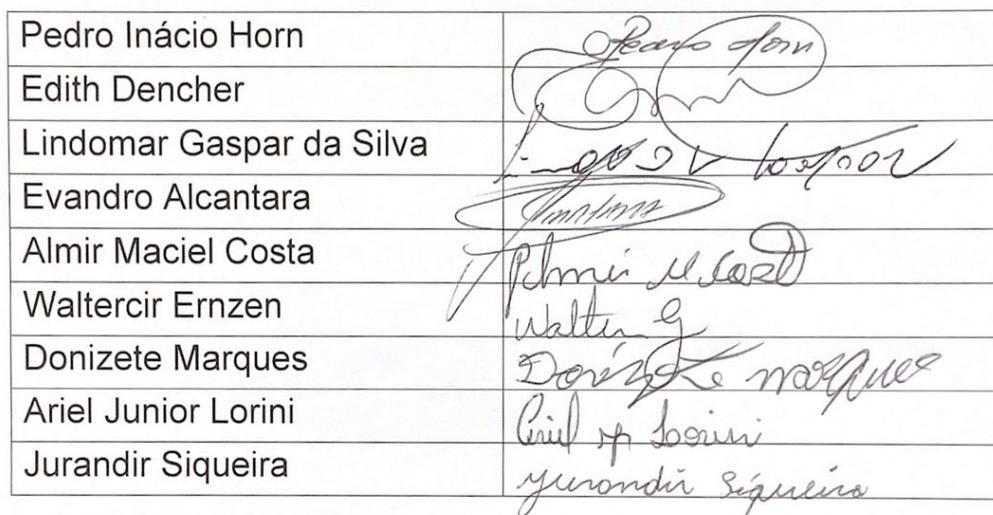 Pedro Inácio Horn Pedro Horn
Edith Dencher
Lindomar Gaspar da Silva
Evandro Alcantara
Almir Maciel Costa Almir M Costa
Waltercir Ernzen Walter
Donizete Marques Donizete Marques
Ariel Junior Lorini Ariel Jr Lorini
Jurandir Siqueira Jurandir Siqueira